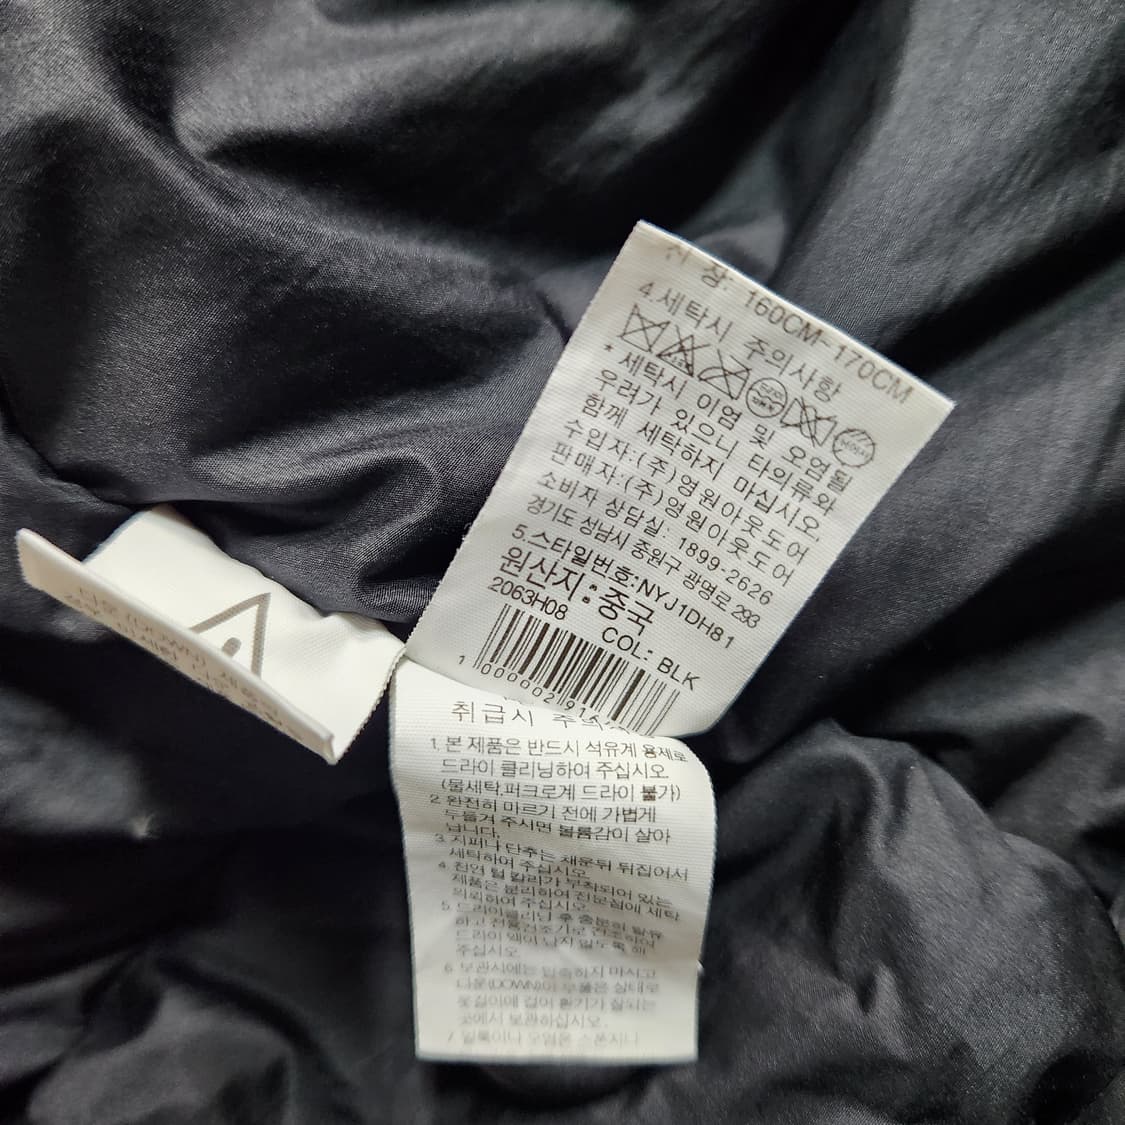 장: 160CM-170CM
4.세탁시 주의사항
* 세탁시 이염 및 오염될
우려가 있으니 타의류와
함께 세탁하지 마십시오.
수입자:(주)영원아웃도어
판매자:(주)영원아웃도어
소비자 상담실: 1899-2626
경기도 성남시 중원구 광명로 293
5.스타일번호:NYJ1DH81
원산지:중국
2063H08 COL: BLK
취급시
1. 본 제품은 반드시 석유계 용제로
드라이 클리닝하여 주십시오.
(물세탁,퍼크로계 드라이 불가)
2. 완전히 마르기 전에 가볍게
두들겨 주시면 볼륨감이 살아
납니다.
3. 지퍼나 단추는 채운뒤 뒤집어서
세탁하여 주십시오.
4. 천연 털 칼라가 부착되어 있는
제품은 분리하여 전문점에 세탁
의뢰하여 주십시오.
5. 드라이클리닝 후 충분히 탈유
하고 전용건조기로 건조하여
드라이 액이 남지 않도록 해
주십시오.
6. 보관시에는 압축하지 마시고
다운(DOWN)이 부풀은 상태로
옷걸이에 걸어 환기가 잘되는
곳에서 보관하십시오.
7. 얼룩이나 오염은
다운(DOWN)